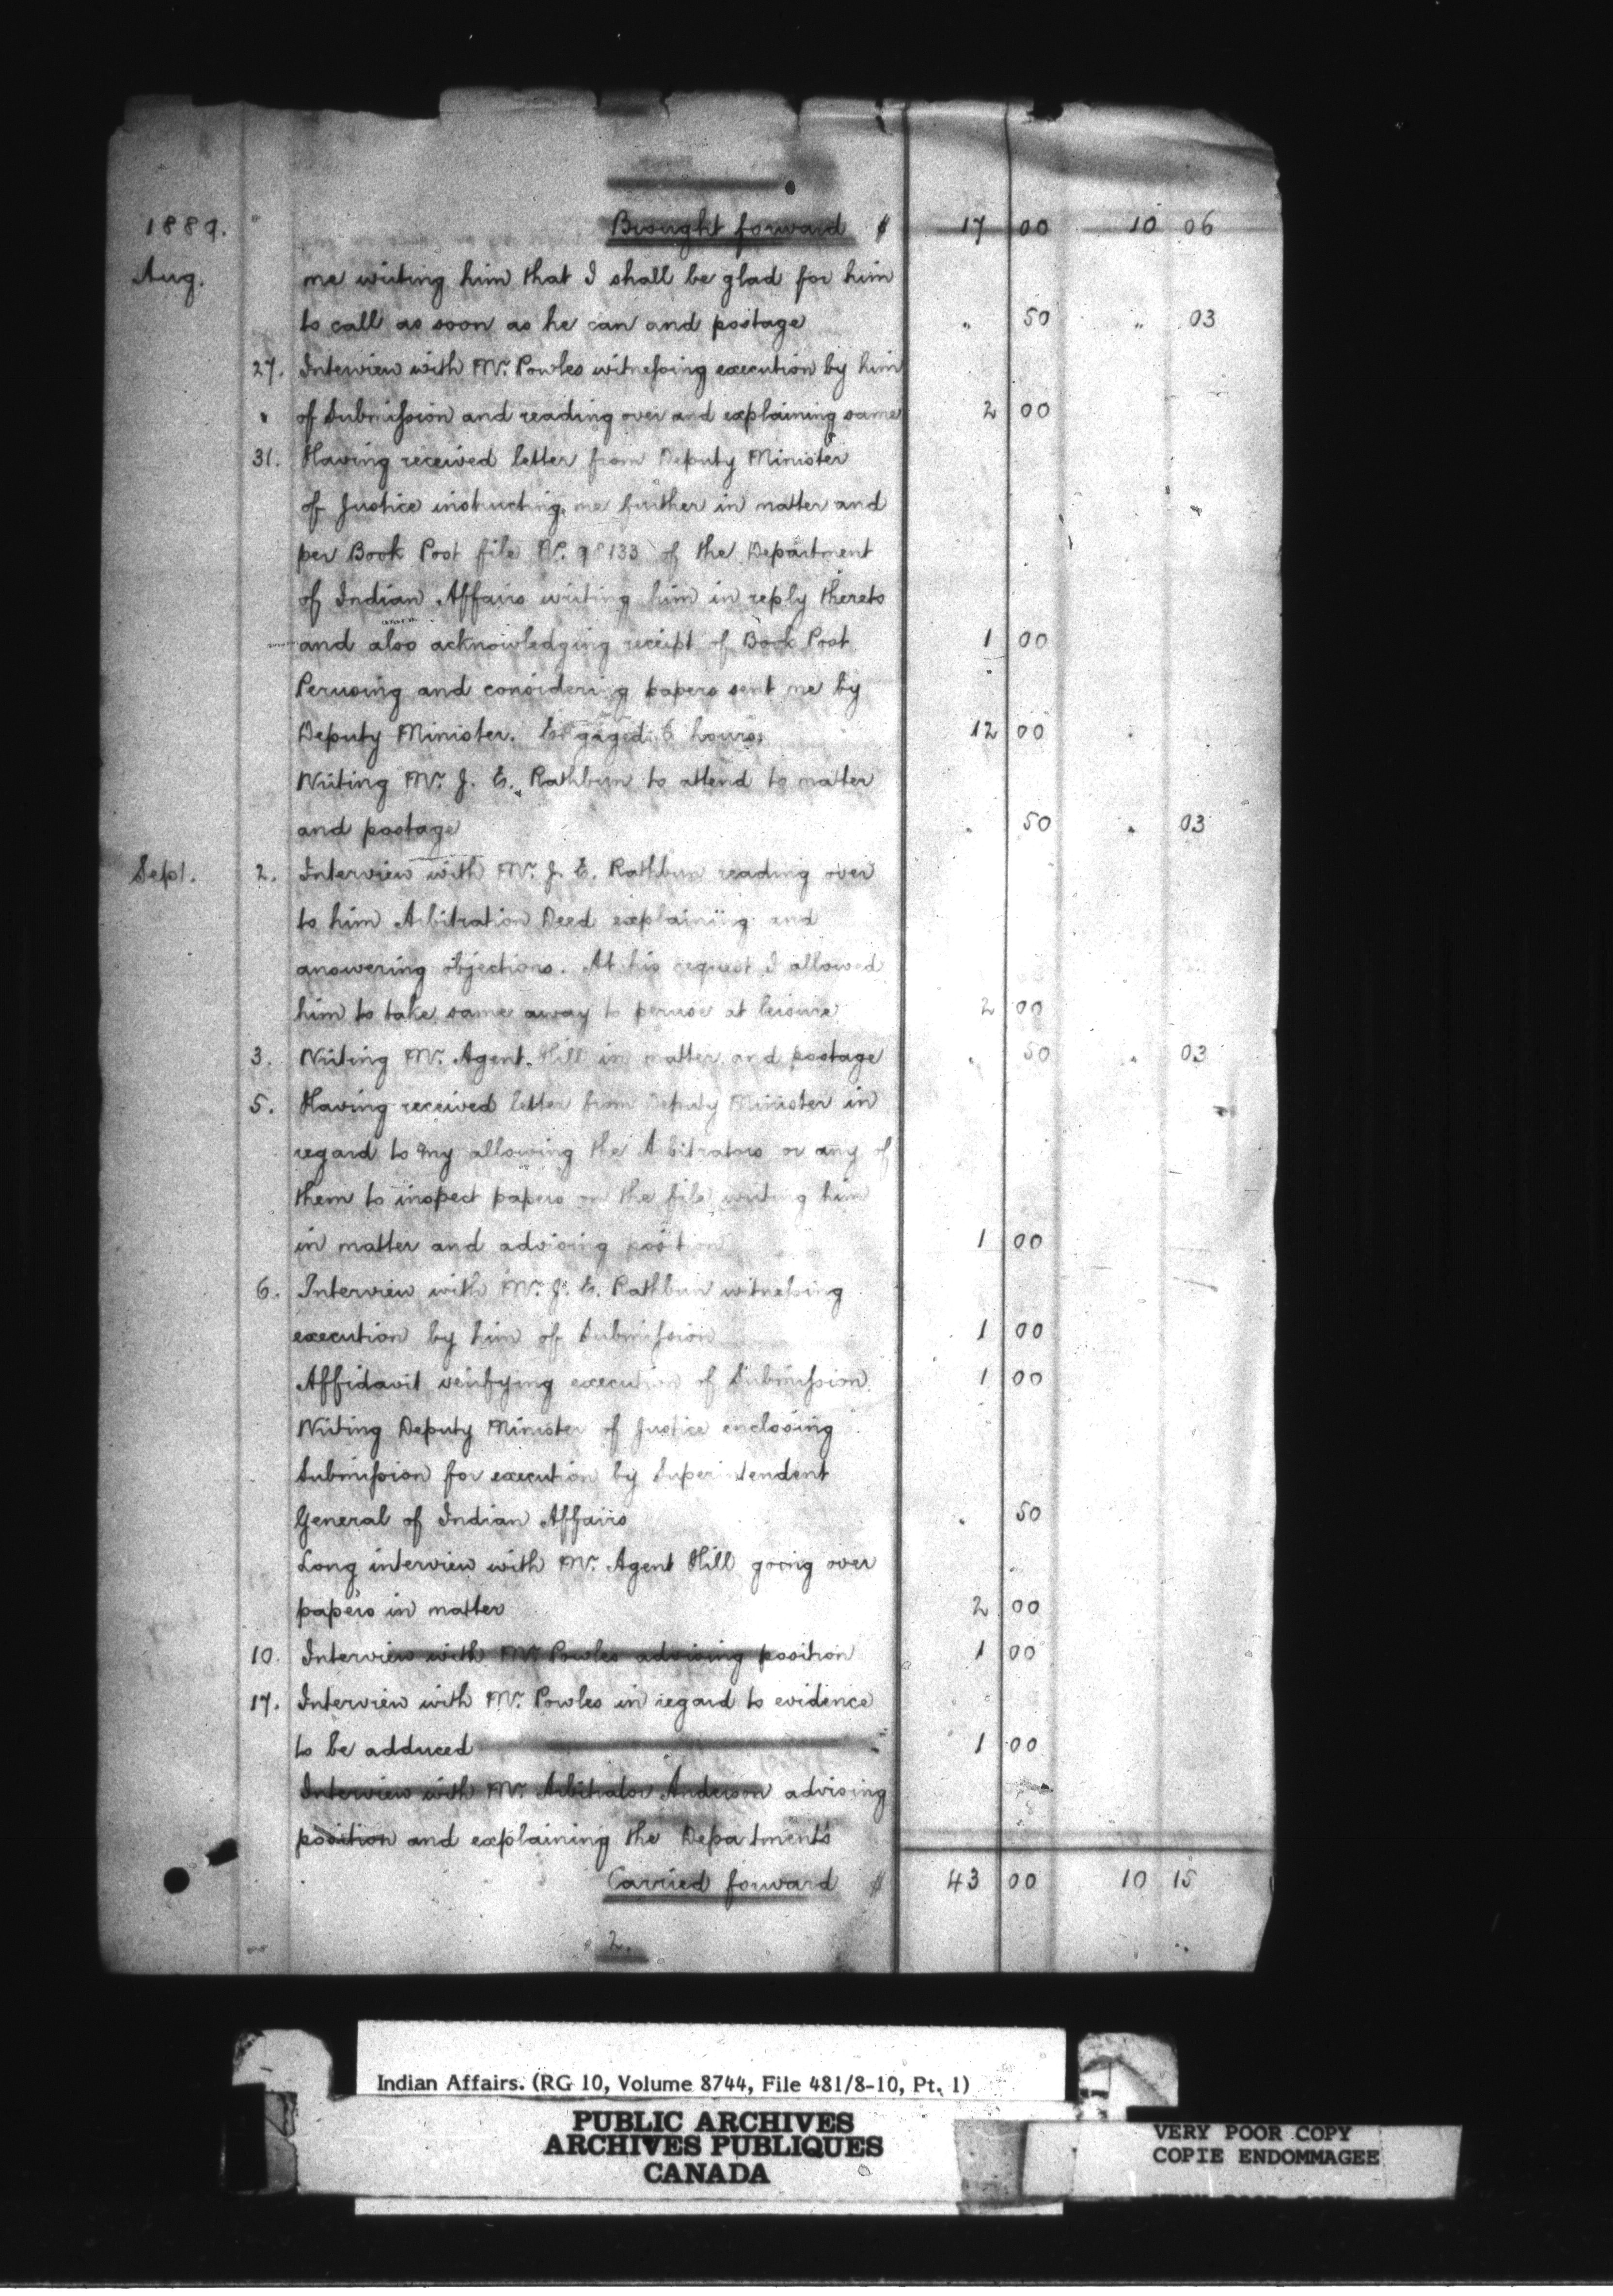 1889. Brought forward $ 17 00 10 06
Aug. me writing him that I shall be glad for him
to call as soon as he can and postage " 50 " 03
27. Interview with Mr. Powles witnessing execution by him
" of Submission and reading over and explaining same 2 00
31. Having received letter from Deputy Minister
of Justice instructing me further in matter and
per Book Post file No. 98133 of the Department
of Indian Affairs writing him in reply thereto
and also acknowledging receipt of Book Post 1 00
Perusing and considering papers sent me by
Deputy Minister. Engaged 6 hours. 12 00
Writing Mr. J. E. Rathbun to attend to matter
and postage " 50 " 03
Sept. 2. Interview with Mr. J. E. Rathbun reading over
to him Arbitration Deed explaining and
answering objections. At his request I allowed
him to take same away to peruse at leisure 2 00
3. Writing Mr. Agent Hill in matter and postage " 50 " 03
5. Having received letter from Deputy Minister in
regard to my allowing the Arbitrators or any of
them to inspect papers on the file writing him
in matter and advising position 1 00
6. Interview with Mr. J. E. Rathbun witnessing
execution by him of Submission 1 00
Affidavit verifying execution of Submission 1 00
Writing Deputy Minister of Justice enclosing
Submission for execution by Superintendent
General of Indian Affairs " 50
Long interview with Mr. Agent Hill going over
papers in matter 2 00
10. Interview with Mr. Powles advising position 1 00
17. Interview with Mr. Powles in regard to evidence
to be adduced 1 00
Interview with Mr. Arbitrator Anderson advising
position and explaining the Department's
Carried forward $ 43 00 10 15
2.
Indian Affairs. (RG 10, Volume 8744, File 481/8-10, Pt. 1)
PUBLIC ARCHIVES
ARCHIVES PUBLIQUES
CANADA
VERY POOR COPY
COPIE ENDOMMAGEE